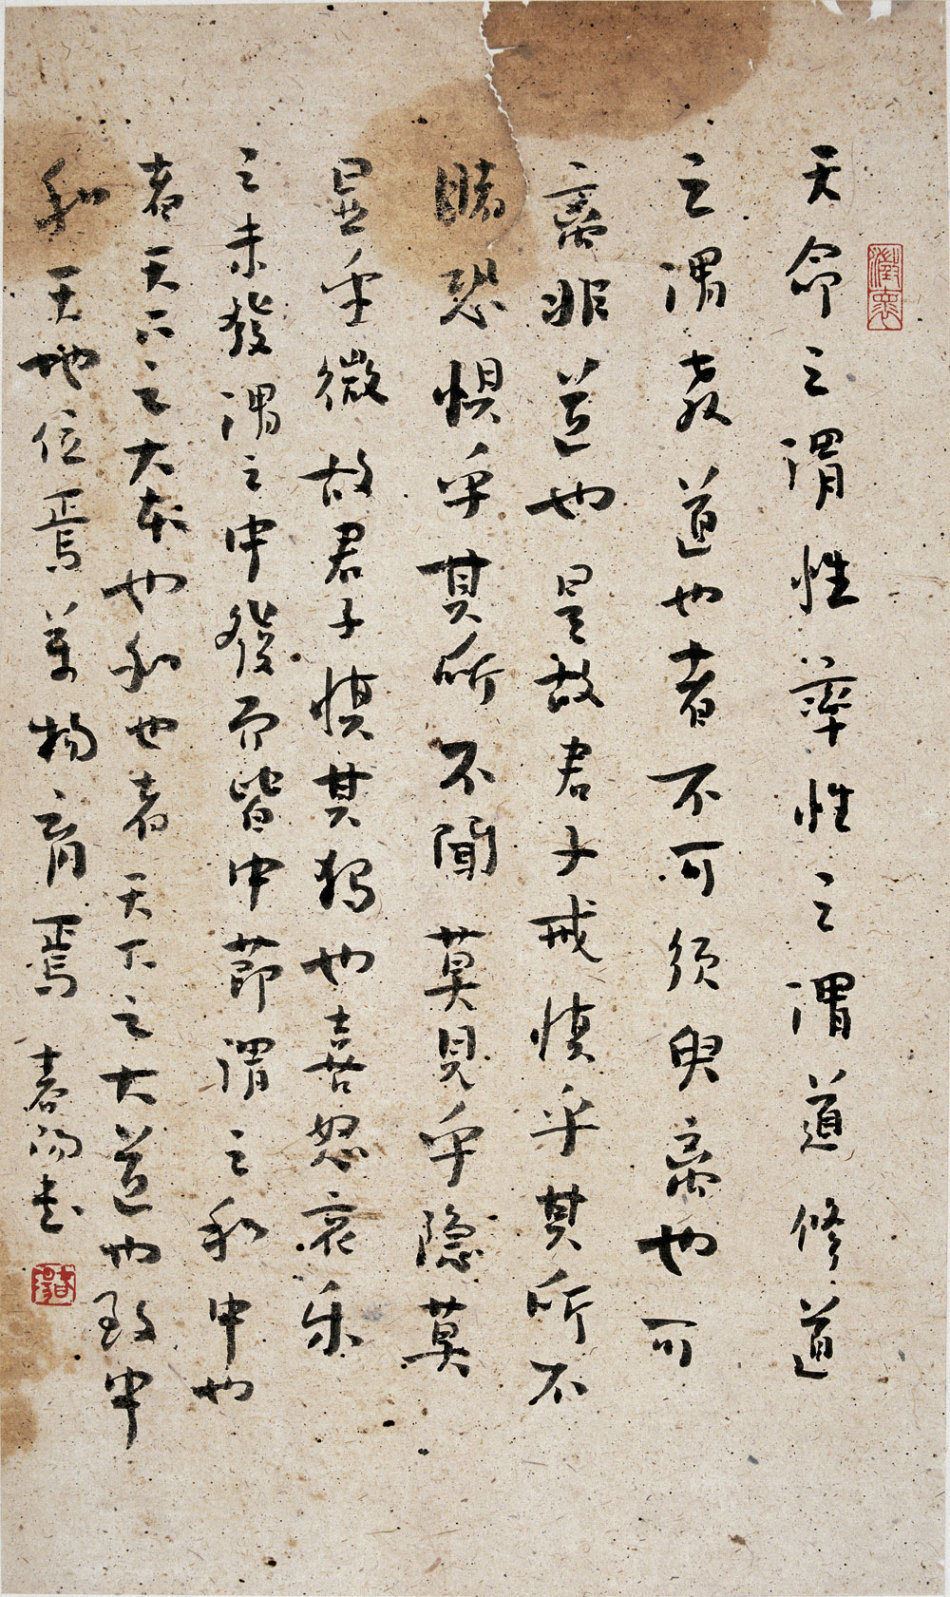 天命之謂性率性之謂道修道
之謂教道也者不可須臾離也可
離非道也是故君子戒慎乎其所不
睹恐懼乎其所不聞莫見乎隱莫
顯乎微故君子慎其獨也喜怒哀樂
之未發謂之中發而皆中節謂之和中也
者天下之大本也和也者天下之大道也致中
和天地位焉萬物育焉 春陽書
春陽